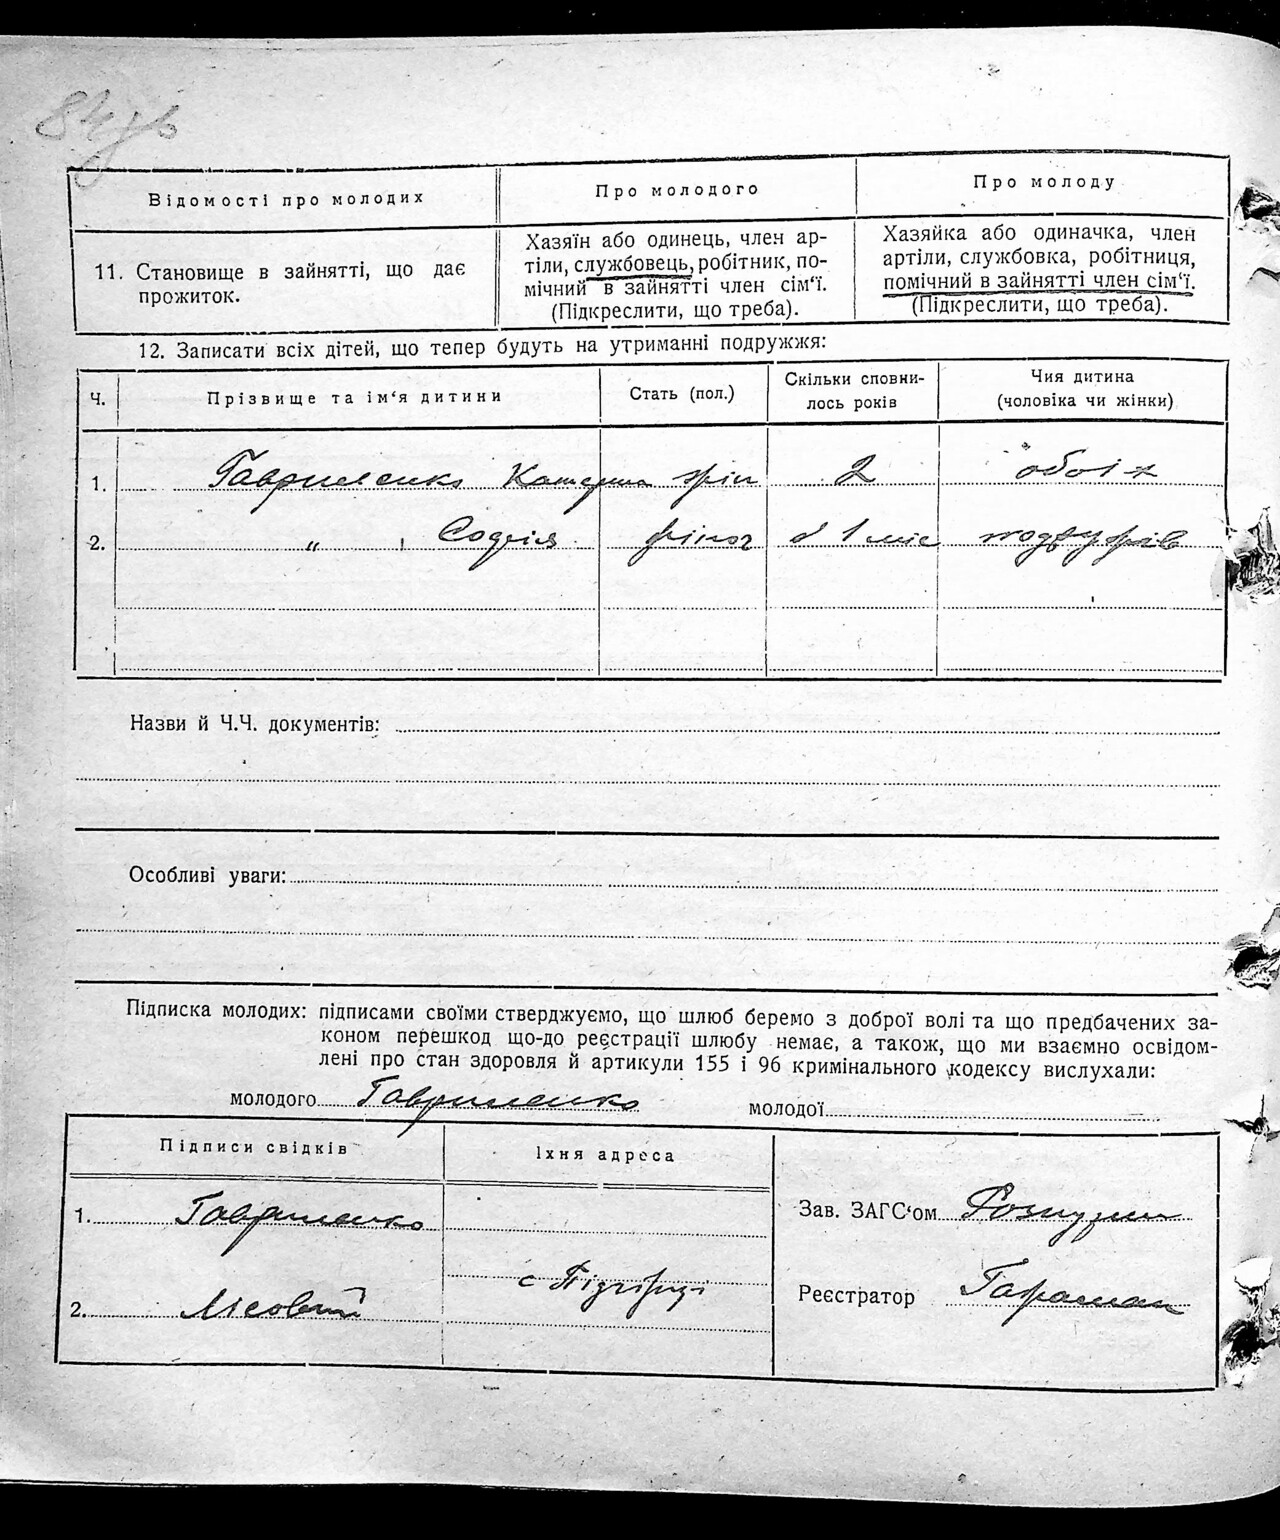 84
Відомості про молодих
Про молодого
Про молоду
11. Становище в зайнятті, що дає
прожиток.
Хазяїн або одинець, член ар-
тіли, службовець, робітник, по-
мічний в зайнятті член сім'ї.
(Підкреслити, що треба).
Хазяйка або одиначка, член
артіли, службовка, робітниця,
помічний в зайнятті член сім'ї.
(Підкреслити, що треба).
12. Записати всіх дітей, що тепер будуть на утриманні подружжя:
Ч.
Прізвище та ім'я дитини
Стать (пол.)
Скільки сповни-
лось років
Чия дитина
(чоловіка чи жінки)
1. Гавриленко Катерина 2 обоіх
2. " Софія 1 міс
Назви й Ч.Ч. документів:
Особливі уваги:
Підписка молодих: підписами своїми стверджуємо, що шлюб беремо з доброї волі та що предбачених за-
коном перешкод що-до реєстрації шлюбу немає, а також, що ми взаємно освідом-
лені про стан здоровля й артикули 155 і 96 кримінального кодексу вислухали:
молодого Гавриленко молодої
Підписи свідків
Їхня адреса
1. Гавриленко
2. Лісовий
с Підгірці
Зав. ЗАГС'ом
Реєстратор